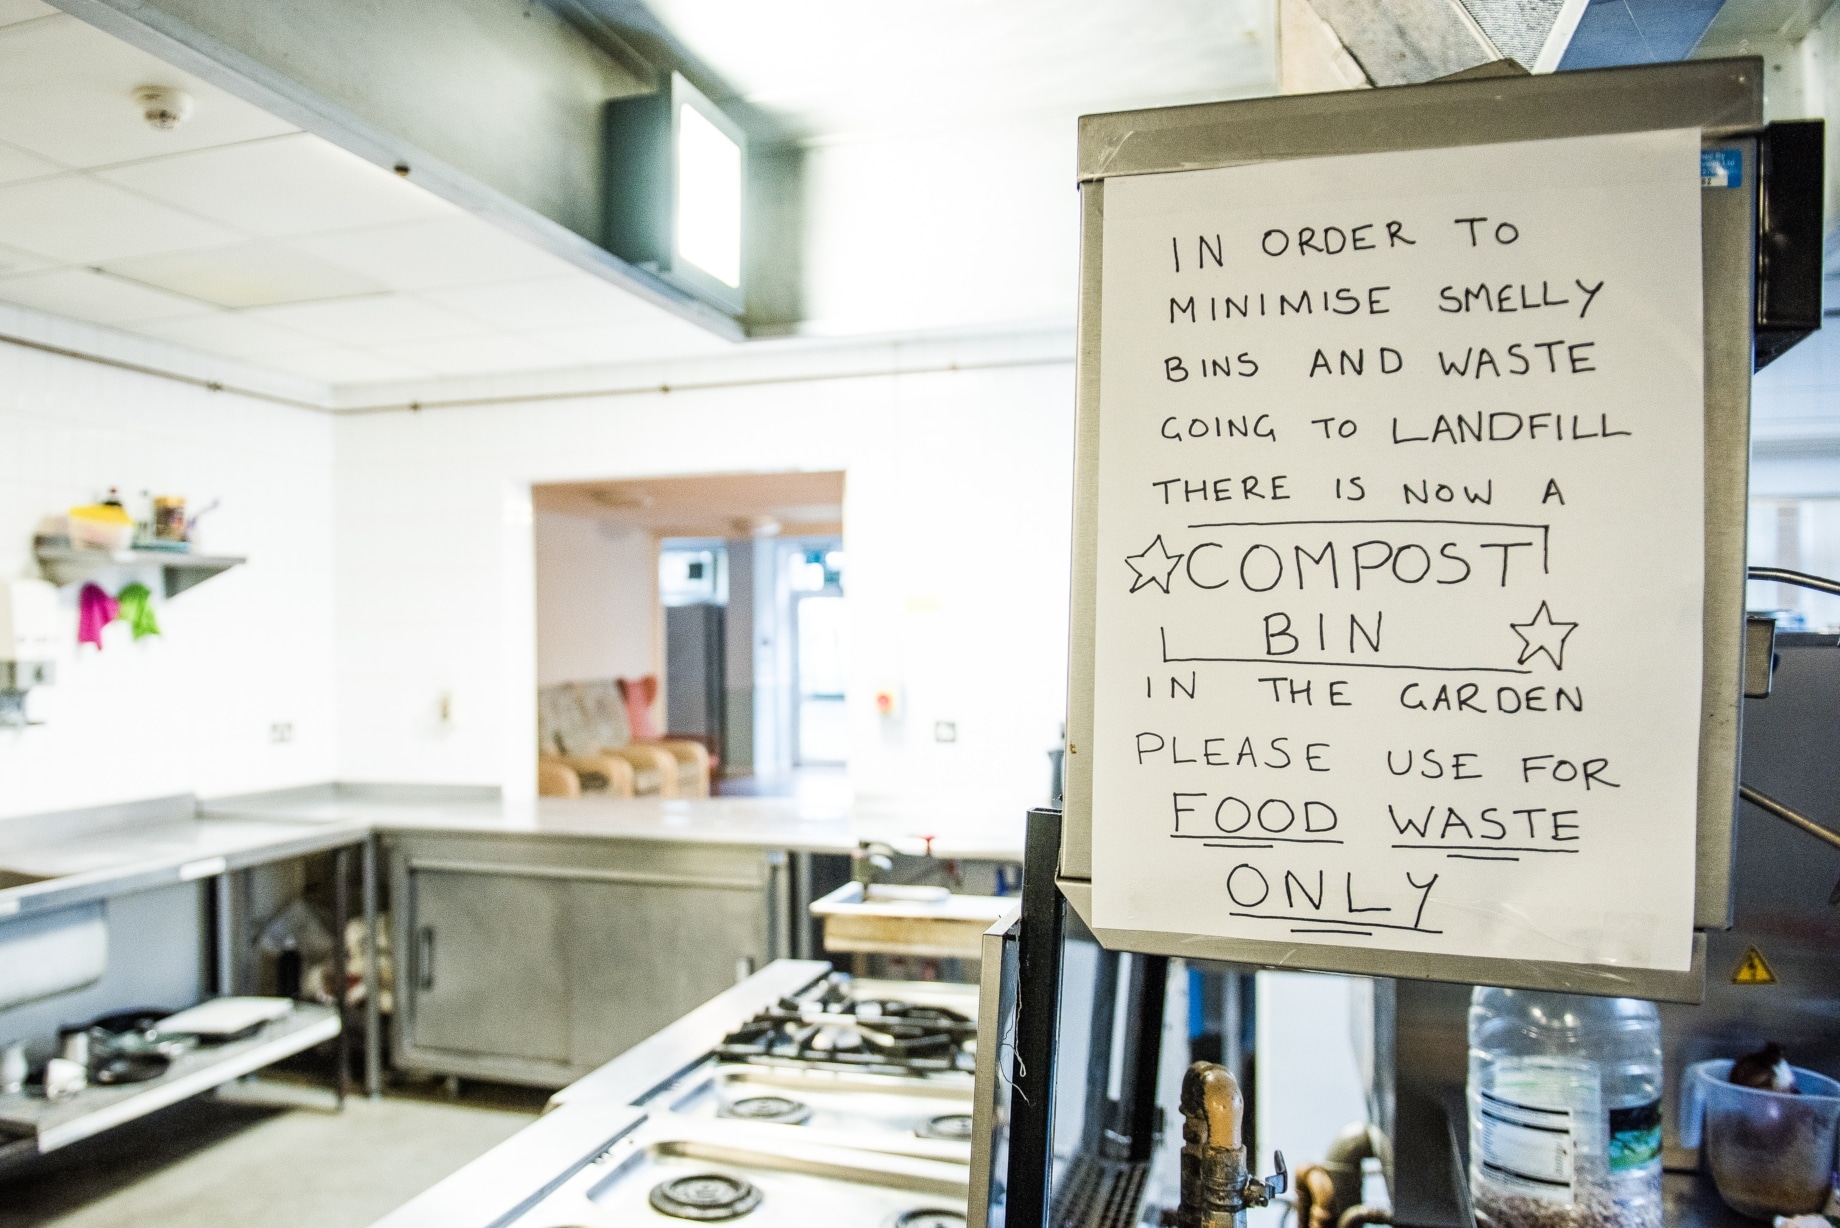 IN ORDER TO
MINIMISE SMELLY
BINS AND WASTE
GOING TO LANDFILL
THERE IS NOW A
COMPOST
BIN
IN THE GARDEN
PLEASE USE FOR
FOOD WASTE
ONLY